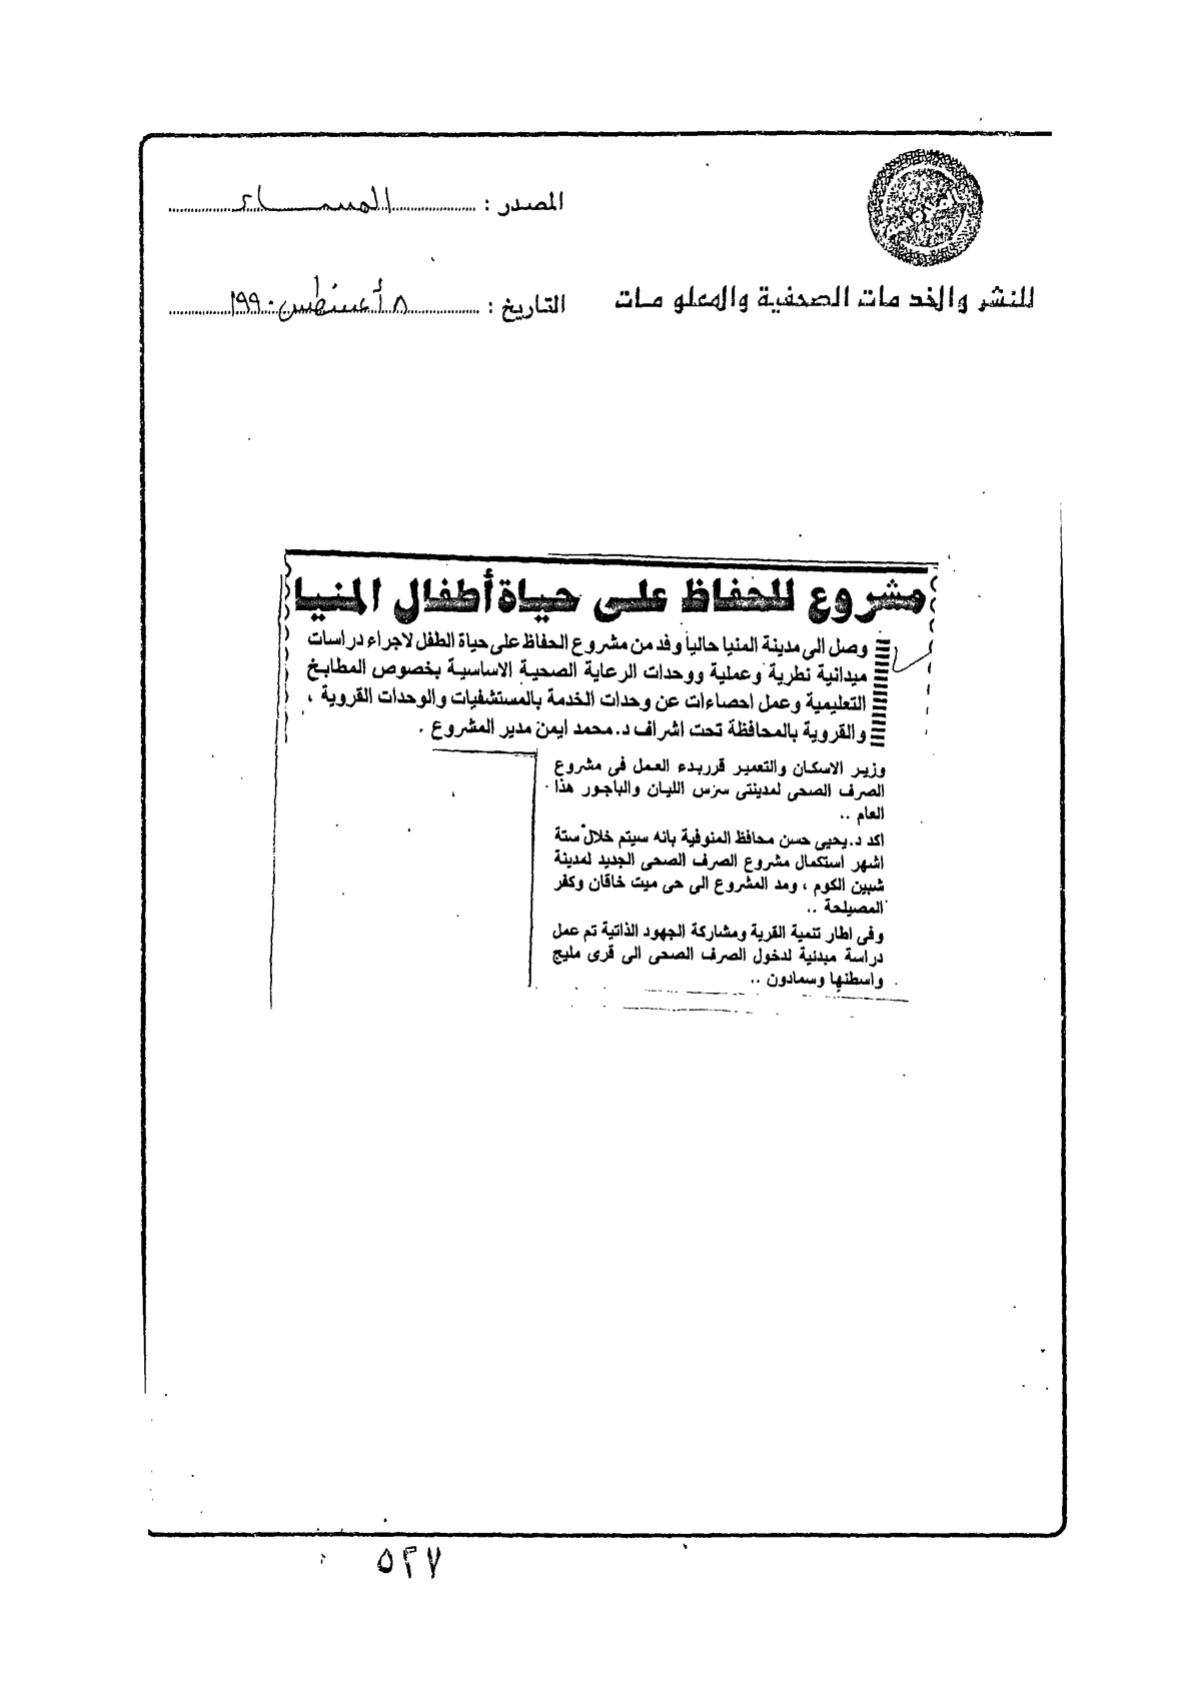 المصدر : المساء
للنشر والخدمات الصحفية والمعلومات
التاريخ : ٨ أغسطس ١٩٩٠
مشروع للحفاظ على حياة أطفال المنيا
وصل الى مدينة المنيا حالياً وفد من مشروع الحفاظ على حياة الطفل لاجراء دراسات
ميدانية نظرية وعملية ووحدات الرعاية الصحية الاساسية بخصوص المطابخ
التعليمية وعمل احصاءات عن وحدات الخدمة بالمستشفيات والوحدات القروية ،
والقروية بالمحافظة تحت اشراف د. محمد ايمن مدير المشروع .
وزير الاسكان والتعمير قرر بدء العمل فى مشروع
الصرف الصحى لمدينتى سرس الليان والباجور هذا
العام ..
اكد د. يحيى حسن محافظ المنوفية بانه سيتم خلال ستة
اشهر استكمال مشروع الصرف الصحى الجديد لمدينة
شبين الكوم ، ومد المشروع الى حى ميت خاقان وكفر
المصيلحة ..
وفى اطار تنمية القرية ومشاركة الجهود الذاتية تم عمل
دراسة مبدئية لدخول الصرف الصحى الى قرى مليج
واسطنها وسمادون ..
٥٢٧